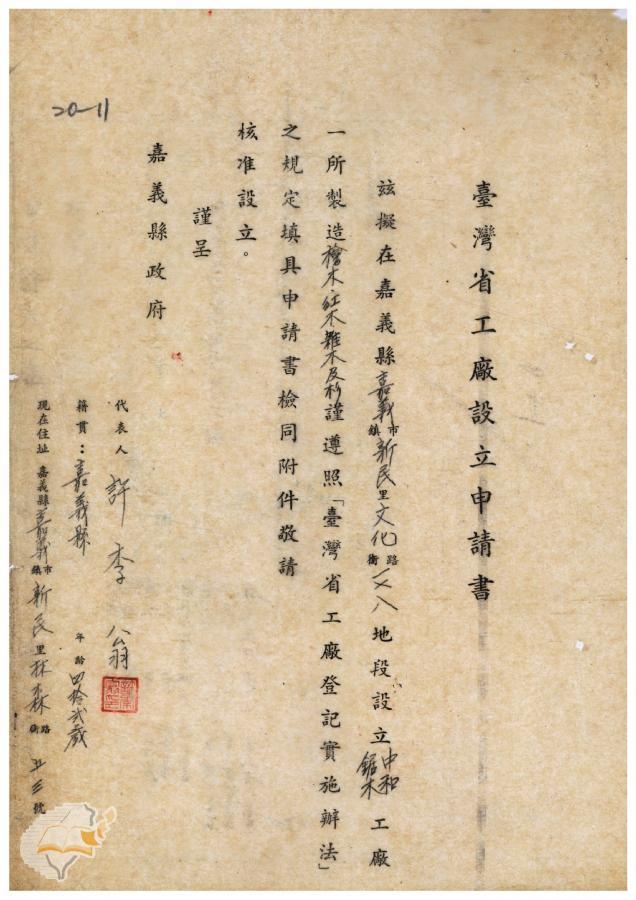 臺灣省工廠設立申請書
茲擬在嘉義縣嘉義鎮市新民里文化街路一八八地段設立中和鋸木工廠
一所製造檜木、紅木雜木及杉謹遵照「臺灣省工廠登記實施辦法」
之規定填具申請書檢同附件敬請
核准設立。
謹呈
嘉義縣政府
代表人 許李翁
籍貫：嘉義縣 年齡四拾弍歲
現在住址 嘉義縣嘉義鎮市新民里林森街路五三號
20-11